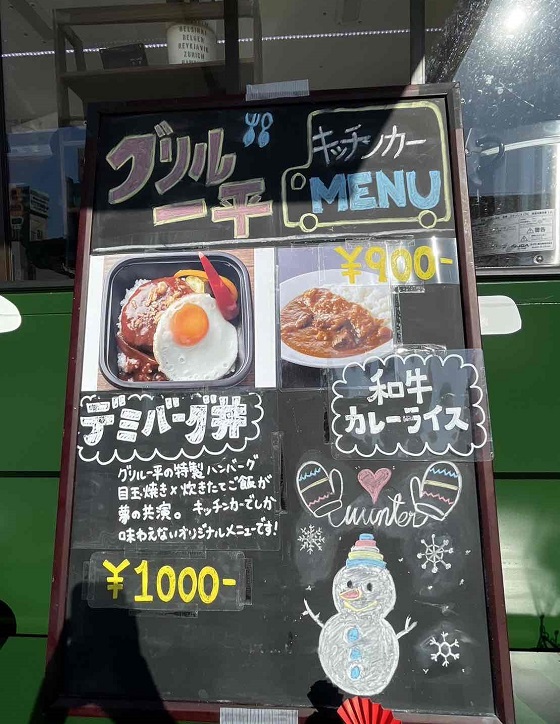 HELSINKI
BERLIN
REYKJAVIK
ZURICH
グリル
一平
キッチンカー
MENU
¥900-
和牛
カレーライス
デミバーグ丼
グリル一平の特製ハンバーグ
目玉焼き×炊きたてご飯が
夢の共演。キッチンカーでしか
味わえないオリジナルメニューです!
¥1000-
winter